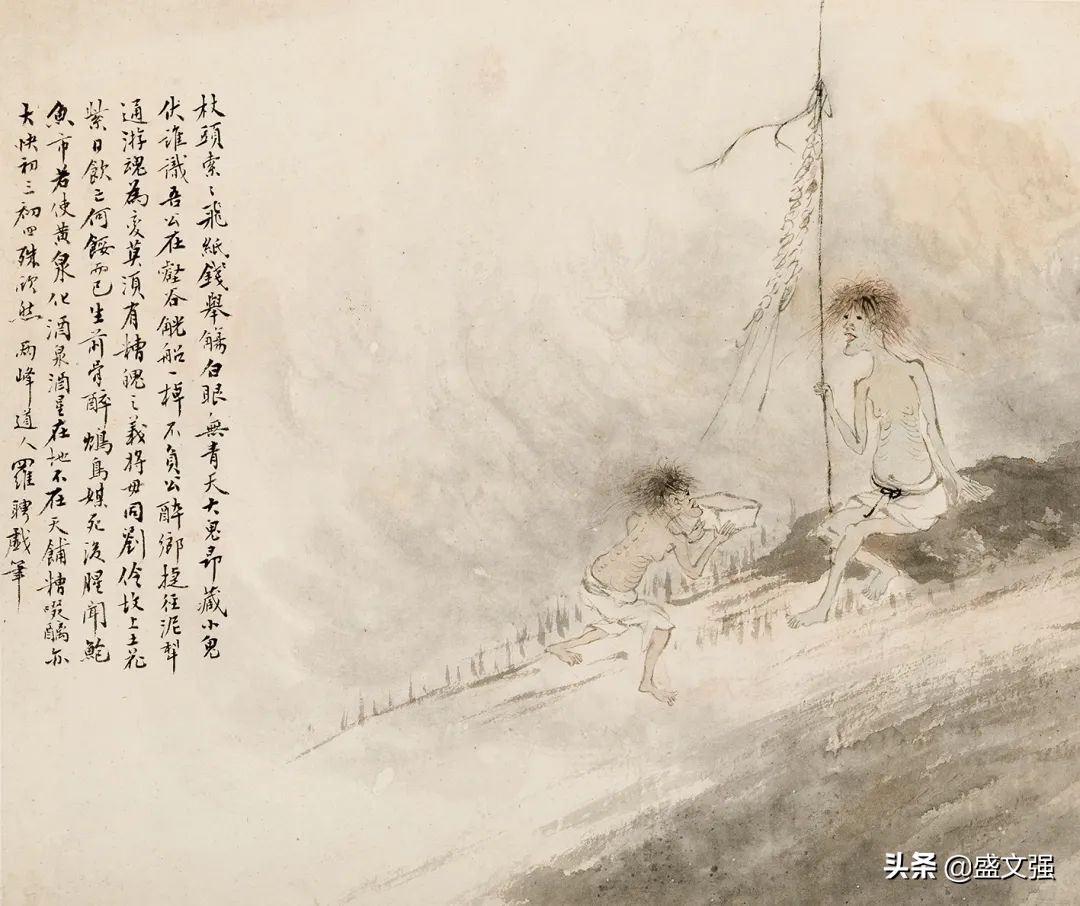 杖頭索〻飛紙錢舉觴白眼無青天大鬼昂藏小鬼
伏誰識吾公在壑谷觥船一棹不負公醉鄉捷徑泥犁
通游魂為变莫須有糟魄之義將毋同劉伶坟上土花
紫日飲亡何餒而已生前骨醉鴆鳥媒死後腥聞鮑
魚市若使黃泉化酒泉酒星在地不在天餔糟啜醨亦
大快初三初四殊欣然 兩峰道人羅聘戲筆
头条 @盛文强